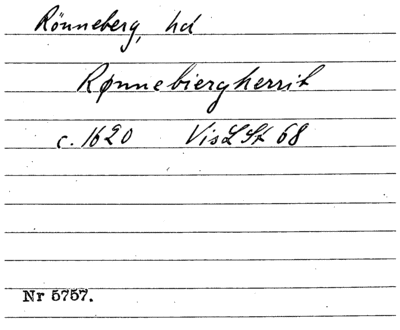 Rönneberg, hd
Rønnebiergherrit
c. 1620 VisLSt 68
Nr 5757.